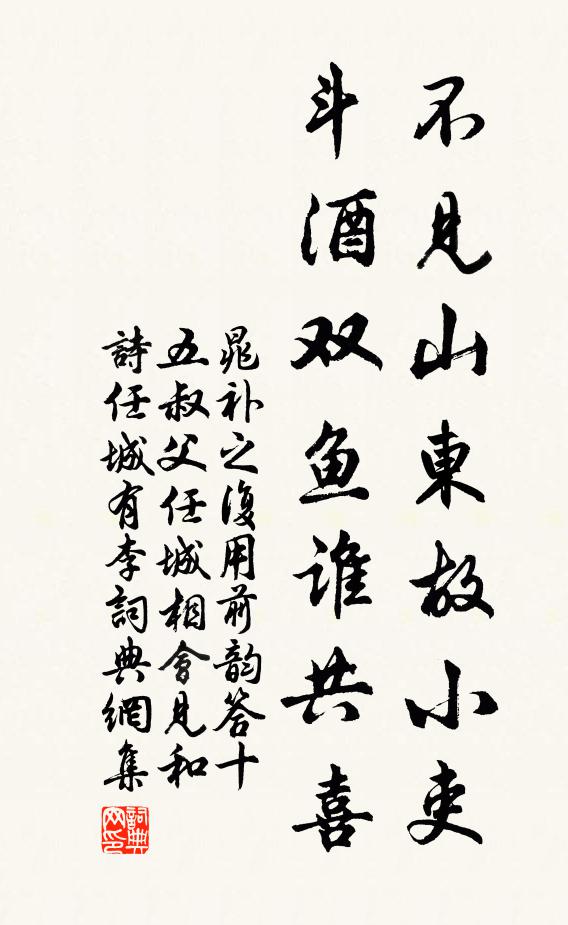 不見山東故小吏
斗酒双鱼谁共喜
晁补之復用前韵答十
五叔父任城相會見和
詩任城有李詞典網集
詞典網印